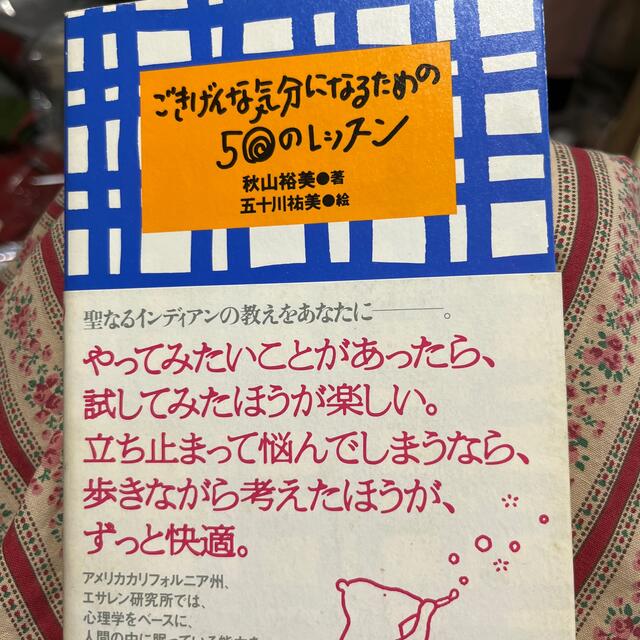 ごきげんな気分になるための
50のレッスン
秋山裕美●著
五十川祐美●絵
聖なるインディアンの教えをあなたに───。
やってみたいことがあったら、
試してみたほうが楽しい。
立ち止まって悩んでしまうなら、
歩きながら考えたほうが、
ずっと快適。
アメリカカリフォルニア州、
エサレン研究所では、
心理学をベースに、
人間の中に眠っている能力を